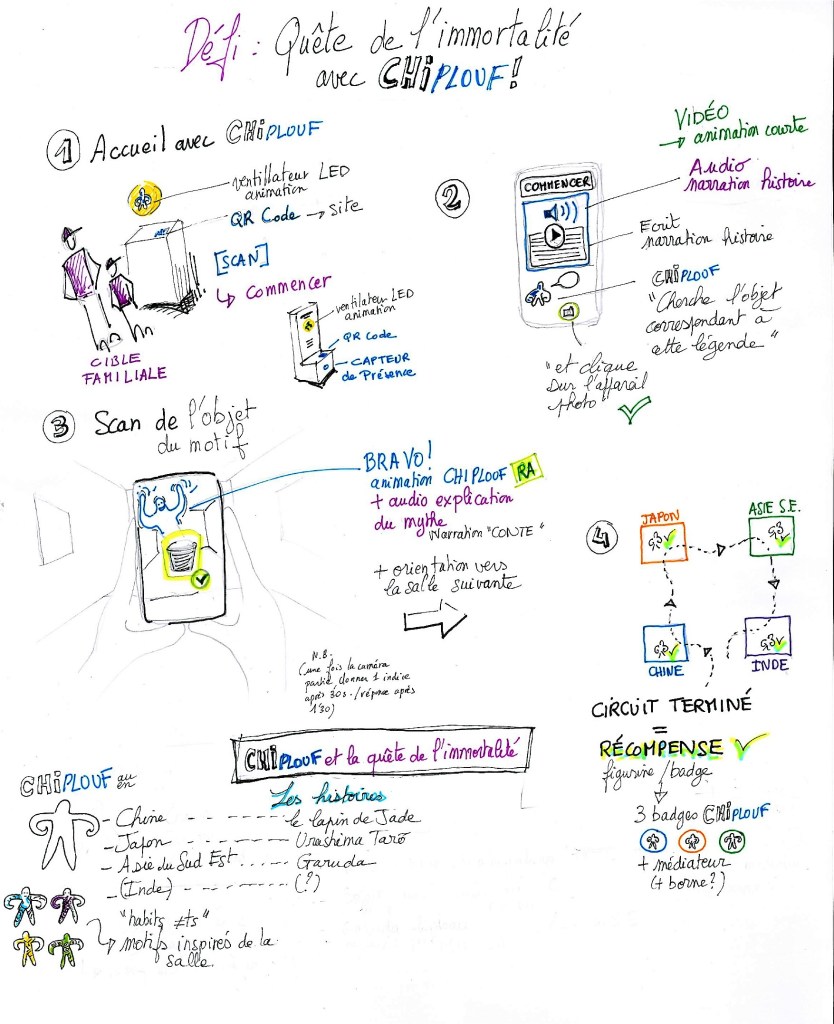 Défi : Quête de l'immortalité
avec CHiPLOUF !
1 Accueil avec CHiPLOUF
ventillateur LED
animation
QR Code → site
[SCAN]
↳ Commencer
CIBLE
FAMILIALE
ventilateur LED
animation
QR Code
CAPTEUR
de Présence
2
COMMENCER
VIDÉO
→ animation courte
Audio
narration histoire
Ecrit
narration histoire
CHiPLOUF
"Cherche l'objet
correspondant à
cette légende"
"et clique
sur l'appareil
photo"
3 Scan de l'objet
du motif
BRAVO!
animation CHIPLOUF RA
+ audio explication
du mythe
Narration "CONTE"
+ orientation vers
la salle suivante
N.B.
(une fois la caméra
partie, donner 1 indice
après 30s./réponse après
1'30)
4
JAPON
ASIE S.E.
CHINE
INDE
CIRCUIT TERMINÉ
=
RÉCOMPENSE
figurine/badge
3 badges CHiPLOUF
+ médiateur
(+ borne?)
CHiPLOUF et la quête de l'immortalité
CHiPLOUF au
en
Les histoires
- Chine - - - - - le lapin de Jade
- Japon - - - - - Urashima Tarō
- Asie du Sud Est ..... - Garuda
- (Inde) - - - - - (?)
"habits ≠ts"
↳ motifs inspirés de la
salle.